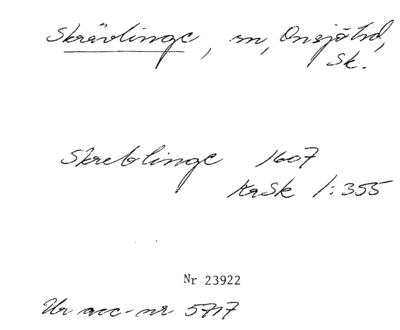 Skrävlinge, sn, Onsjö hd,
Sk.
Skreblinge 1607
KrSk 1:355
Nr 23922
Ur acc-nr 5717